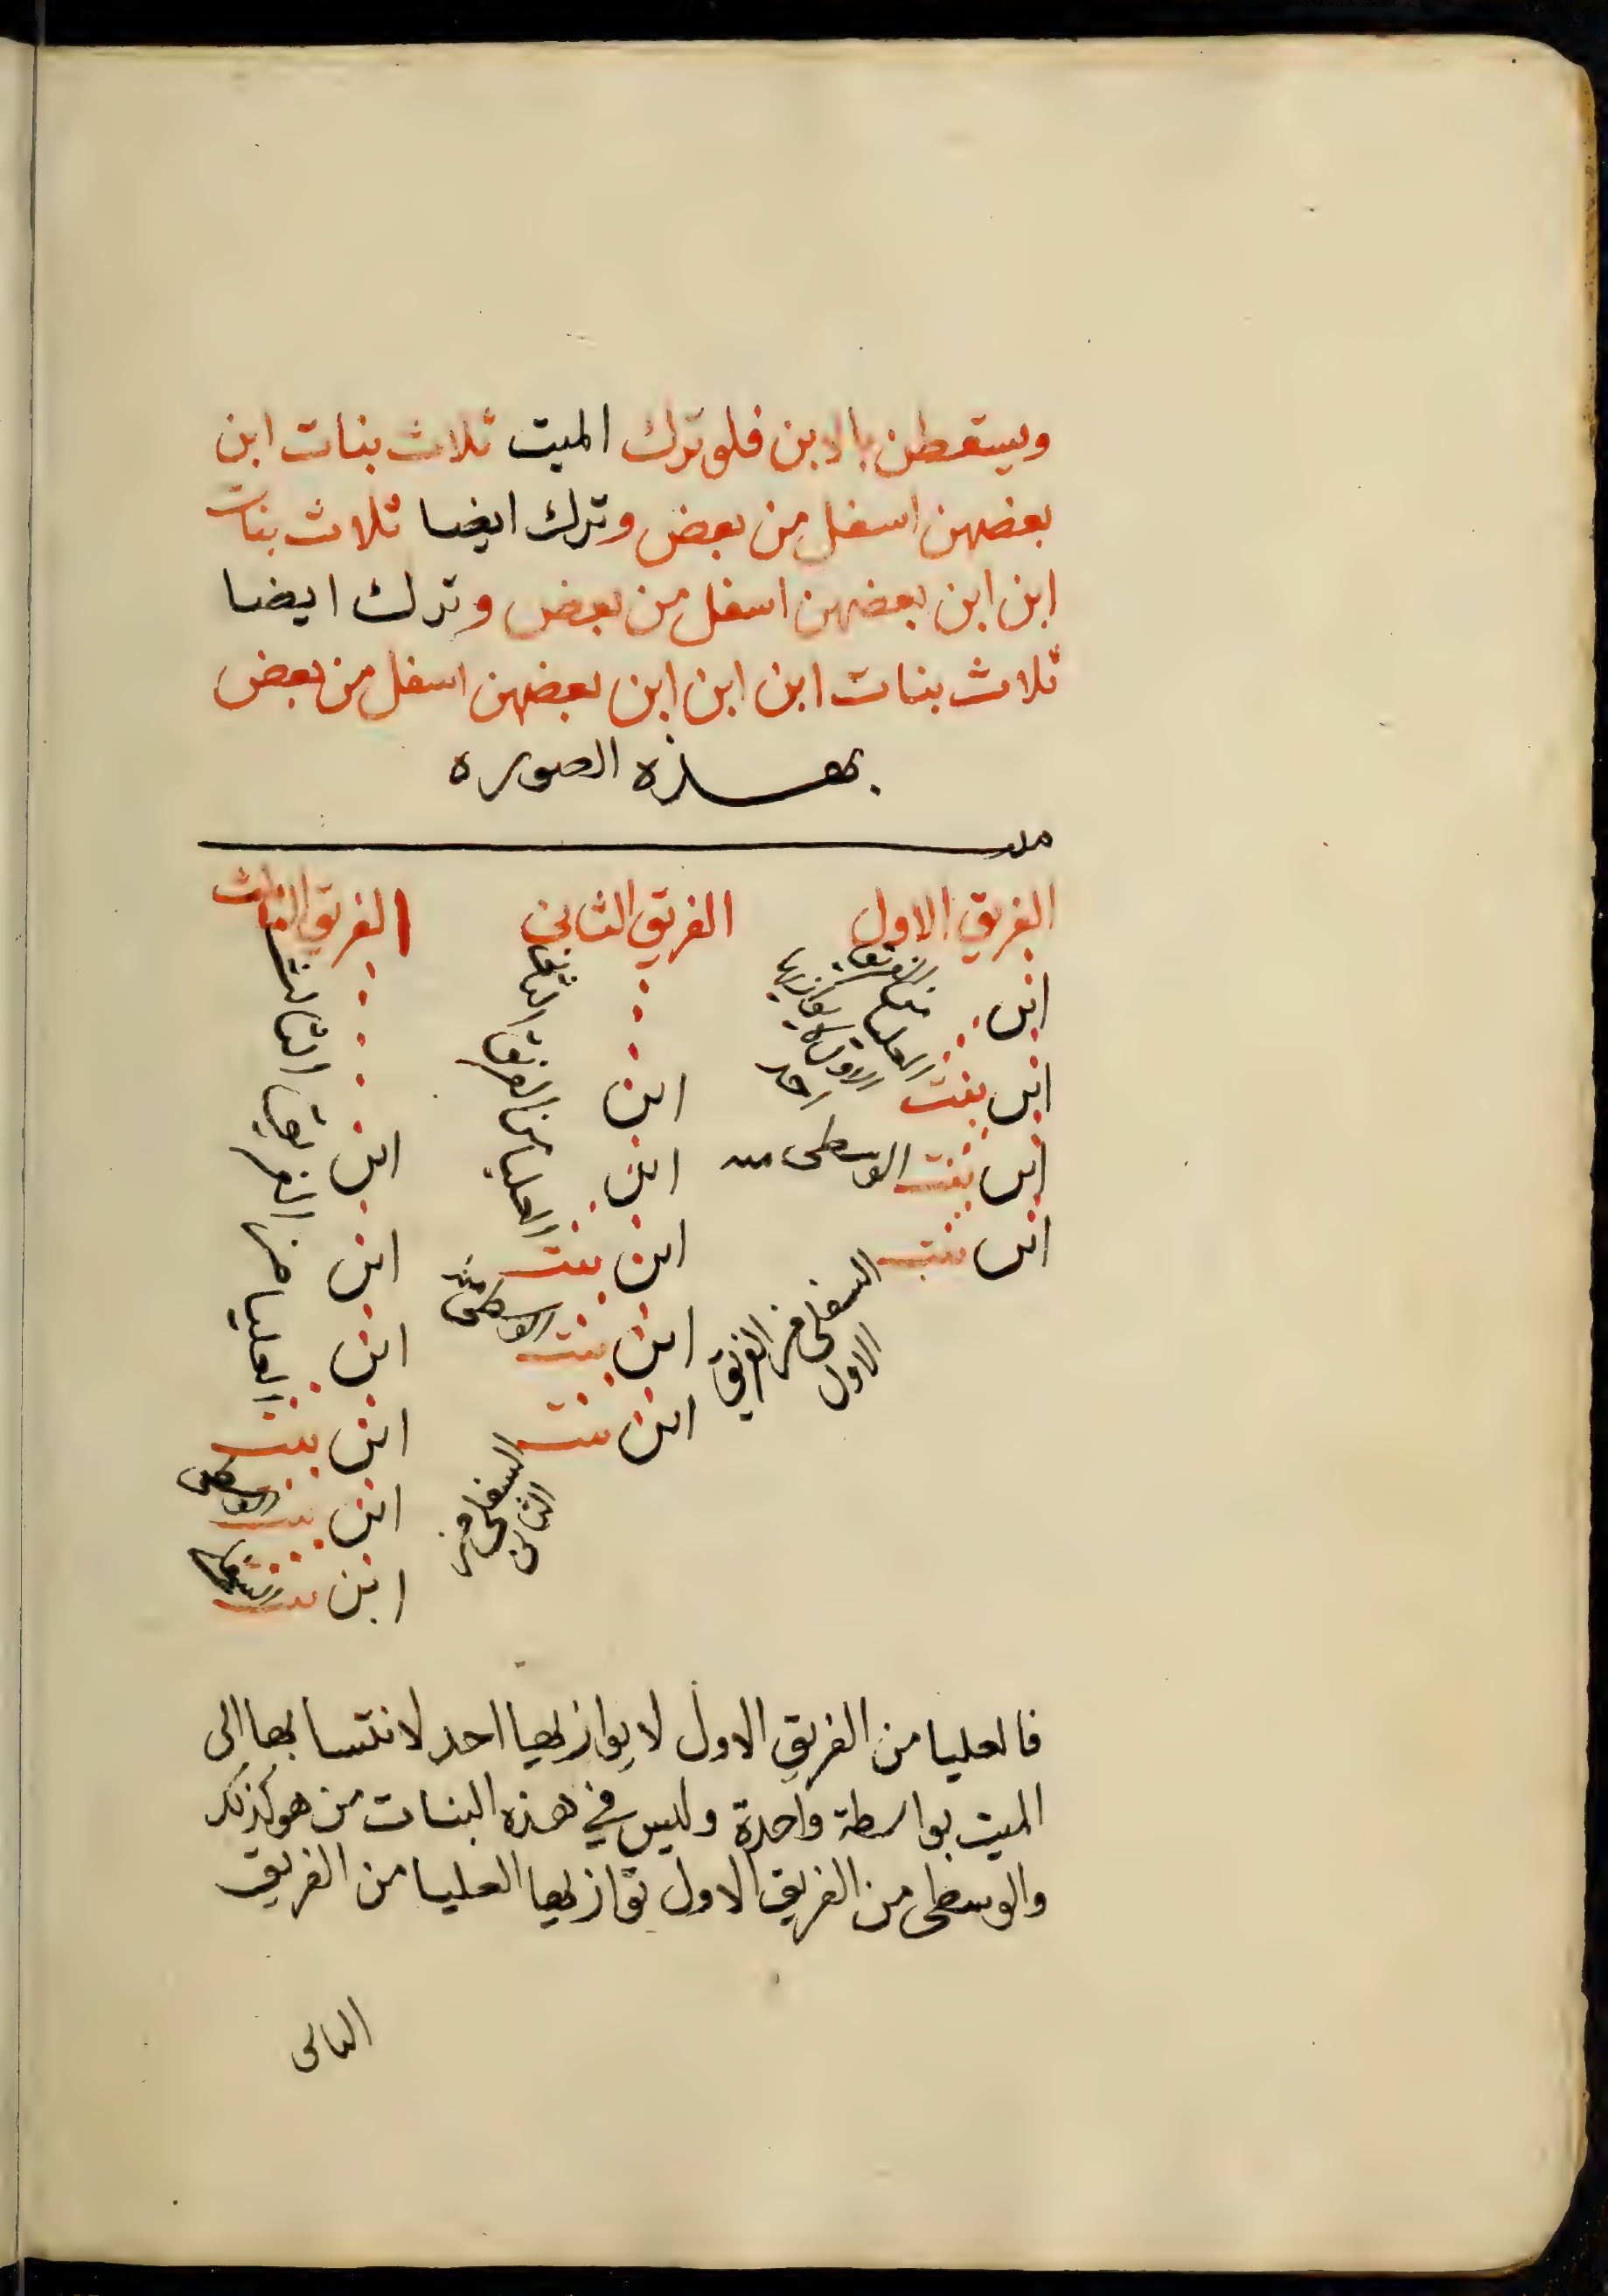 ويسقطن بالابن فلو ترك الميت ثلاث بنات ابن
بعضهن اسفل من بعض وترك ايضا ثلاث بنات
ابن ابن بعضهن اسفل من بعض وترك ايضا
ثلاث بنات ابن ابن ابن بعضهن اسفل من بعض
بهذه الصوره
الفريق الاول
ابن
ابن بنت
العليا من الفريق
الاول لا يوازيها
احد
ابن بنت الوسطى منه
ابن بنت
السفلى من الفريق
الاول
الفريق الثاني
ابن
ابن
ابن بنت
العليا من الفريق الثاني
ابن بنت
الوسطى منه
ابن بنت
السفلى من
الثاني
الفريق الثالث
ابن
ابن
ابن
ابن بنت
العليا من الفريق الثالث
ابن بنت
الوسطى
ابن بنت
السفلى
فالعليا من الفريق الاول لا يوازيها احد لانتسابها الى
الميت بواسطة واحدة وليس في هذه البنات من هو كذلك
والوسطى من الفريق الاول توازيها العليا من الفريق
الثاني